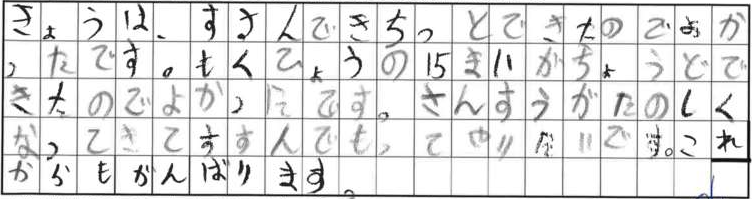 きょうは、すすんできちっとできたのでよか
ったです。もくひょうの15まいがちょうどで
きたのでよかったです。さんすうがたのしく
なってきてすすんでもってやりたいです。これ
からもがんばります。